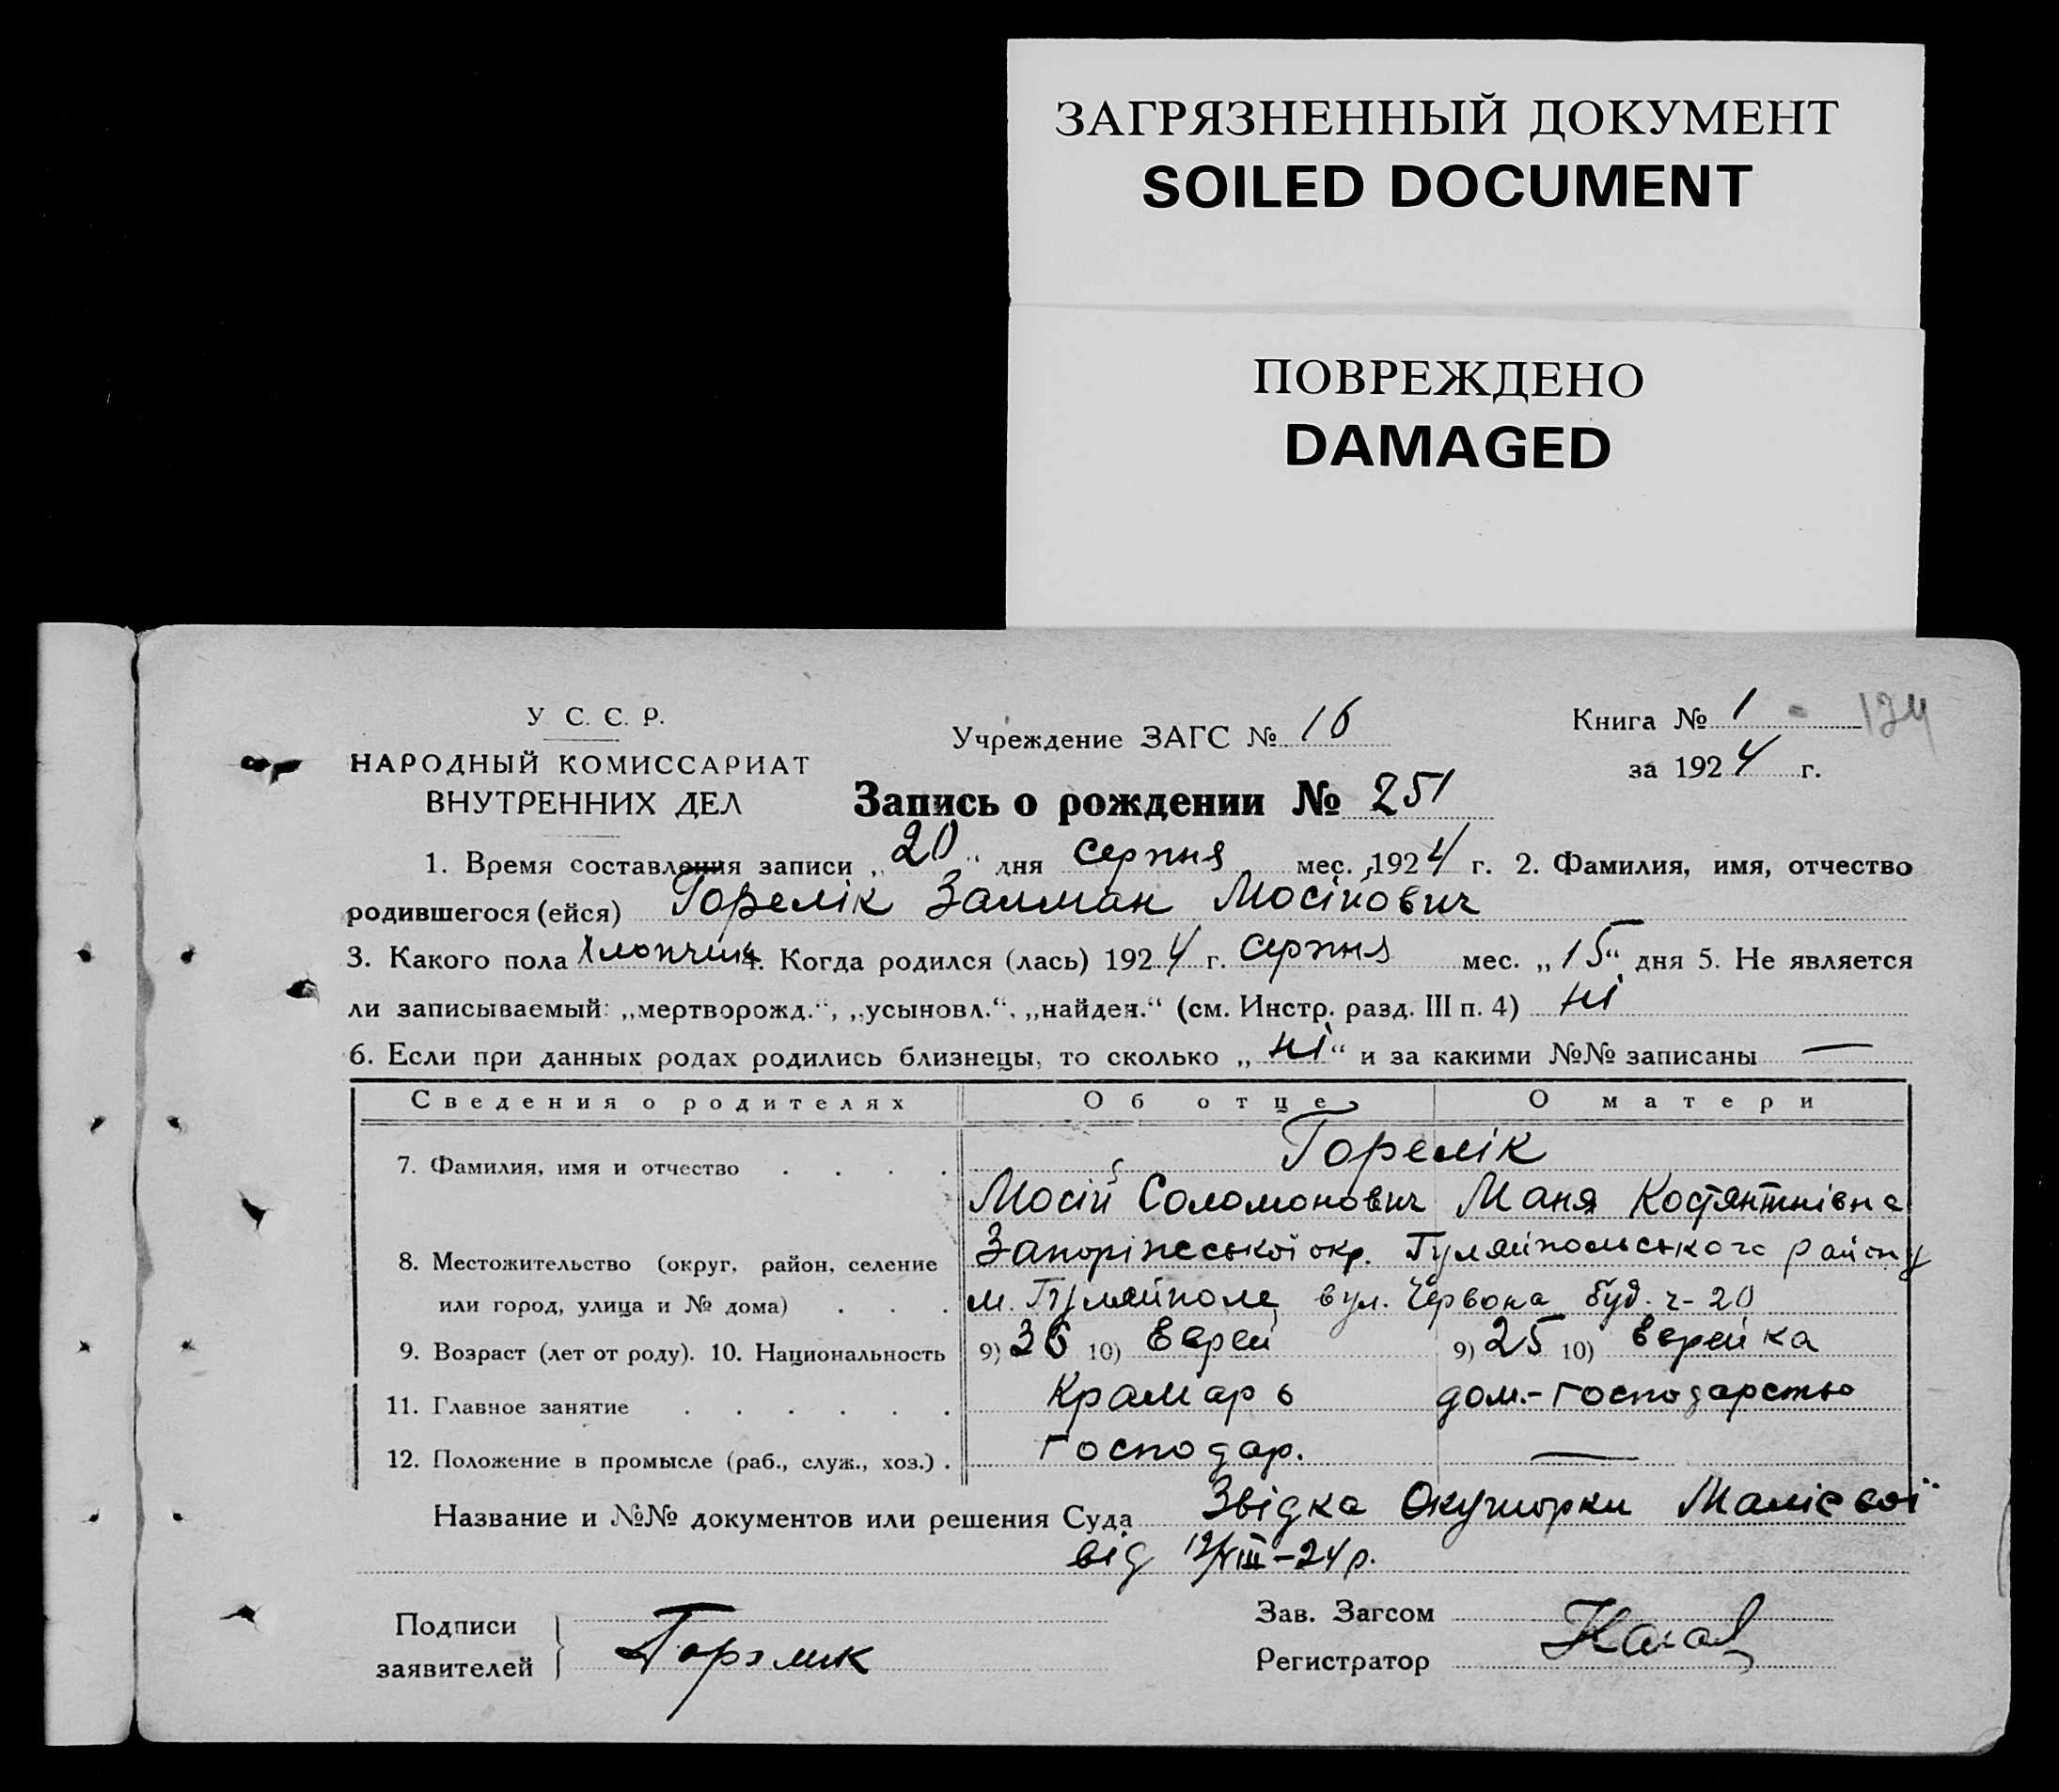 ЗАГРЯЗНЕННЫЙ ДОКУМЕНТ
SOILED DOCUMENT
ПОВРЕЖДЕНО
DAMAGED
У. С. С. Р.
НАРОДНЫЙ КОМИССАРИАТ
ВНУТРЕННИХ ДЕЛ
Учреждение ЗАГС № 16
Книга № 1 124
за 1924 г.
Запись о рождении № 251
1. Время составления записи „20“ дня серпня мес. 1924 г. 2. Фамилия, имя, отчество
родившегося (ейся) Горелік Залман Мосійович
3. Какого пола Хлопчик 4. Когда родился (лась) 1924 г. серпня мес. „15“ дня 5. Не является
ли записываемый: „мертворожд.“, „усыновл.“, „найден.“ (см. Инстр. разд. III п. 4) ні
6. Если при данных родах родились близнецы, то сколько „ні“ и за какими №№ записаны —
Сведения о родителях Об отце О матери
7. Фамилия, имя и отчество . . . . Горелік
Мосій Соломонович Маня Костянтнівна
8. Местожительство (округ, район, селение Запоріжської окр. Гуляйпольського району
или город, улица и № дома) . . . м. Гуляйполе, вул. Червона буд. ч-20
9. Возраст (лет от роду). 10. Национальность 9) 36 10) Еврей 9) 25 10) Еврейка
11. Главное занятие . . . . . . Крамарь дом.-господарство
12. Положение в промысле (раб., служ., хоз.) . господар. —
Название и №№ документов или решения Суда Звідка Окушорки Малієвої
від 19/VIII-24 р.
Подписи
заявителей
Горелик
Зав. Загсом
Регистратор